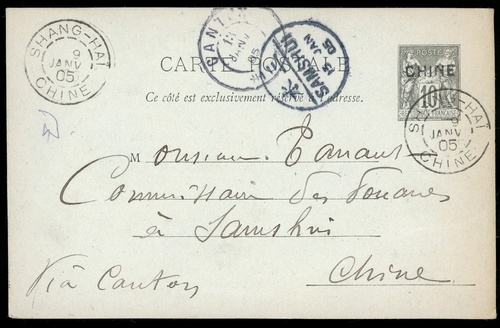 SHANG-HAI
9
JANV
05
CHINE
CANTON
13
JANV
05
SAMSHUI
13
JAN
05
CARTE POSTALE
Ce côté est exclusivement réservé à l'adresse.
POSTE
CHINE
10
SHANG-HAI
9
JANV
05
CHINE
Monsieur
Commissaire des Douanes
à Samshui
Via Canton
Chine